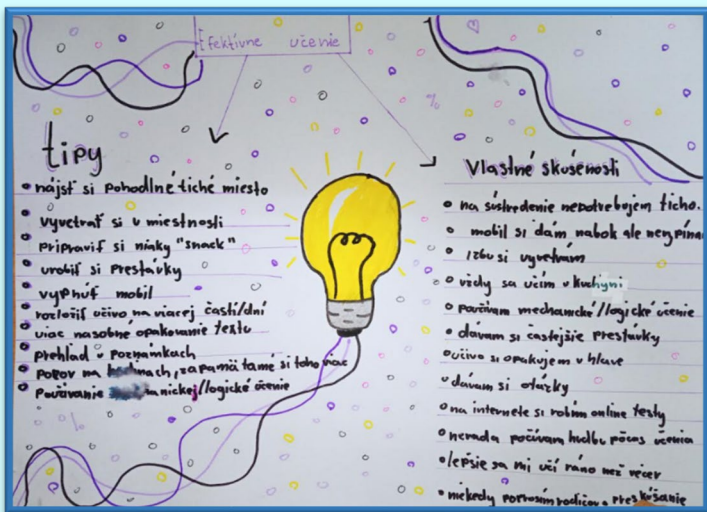 Efektívne učenie
tipy
• nájsť si pohodlné tiché miesto
• vyvetrať si v miestnosti
• pripraviť si niaky "snack"
• urobiť si prestávky
• vypnúť mobil
• rozložiť učivo na viacej častí/dní
• viac nasobné opakovanie textu
• prehlad v poznamkach
• na, zapamätáme si toho viac
• Používanie mechanickej/logické učenie
Vlastné skúsenosti
• na sústredenie nepotrebujem ticho.
• mobil si dám nabok ale nevypína
• izbu si vyvetrám
• vždy sa učím v kuchyni
• používam mechanické/logické učenie
• dávam si častejšie prestávky
• učivo si opakujem v hlave
• dávam si otázky
• na internete si robím online testy
• nerada počúvam hudbu počas učenia
• lepšie sa mi učí ráno než večer
• niekedy poprosím rodičov o preskúšanie